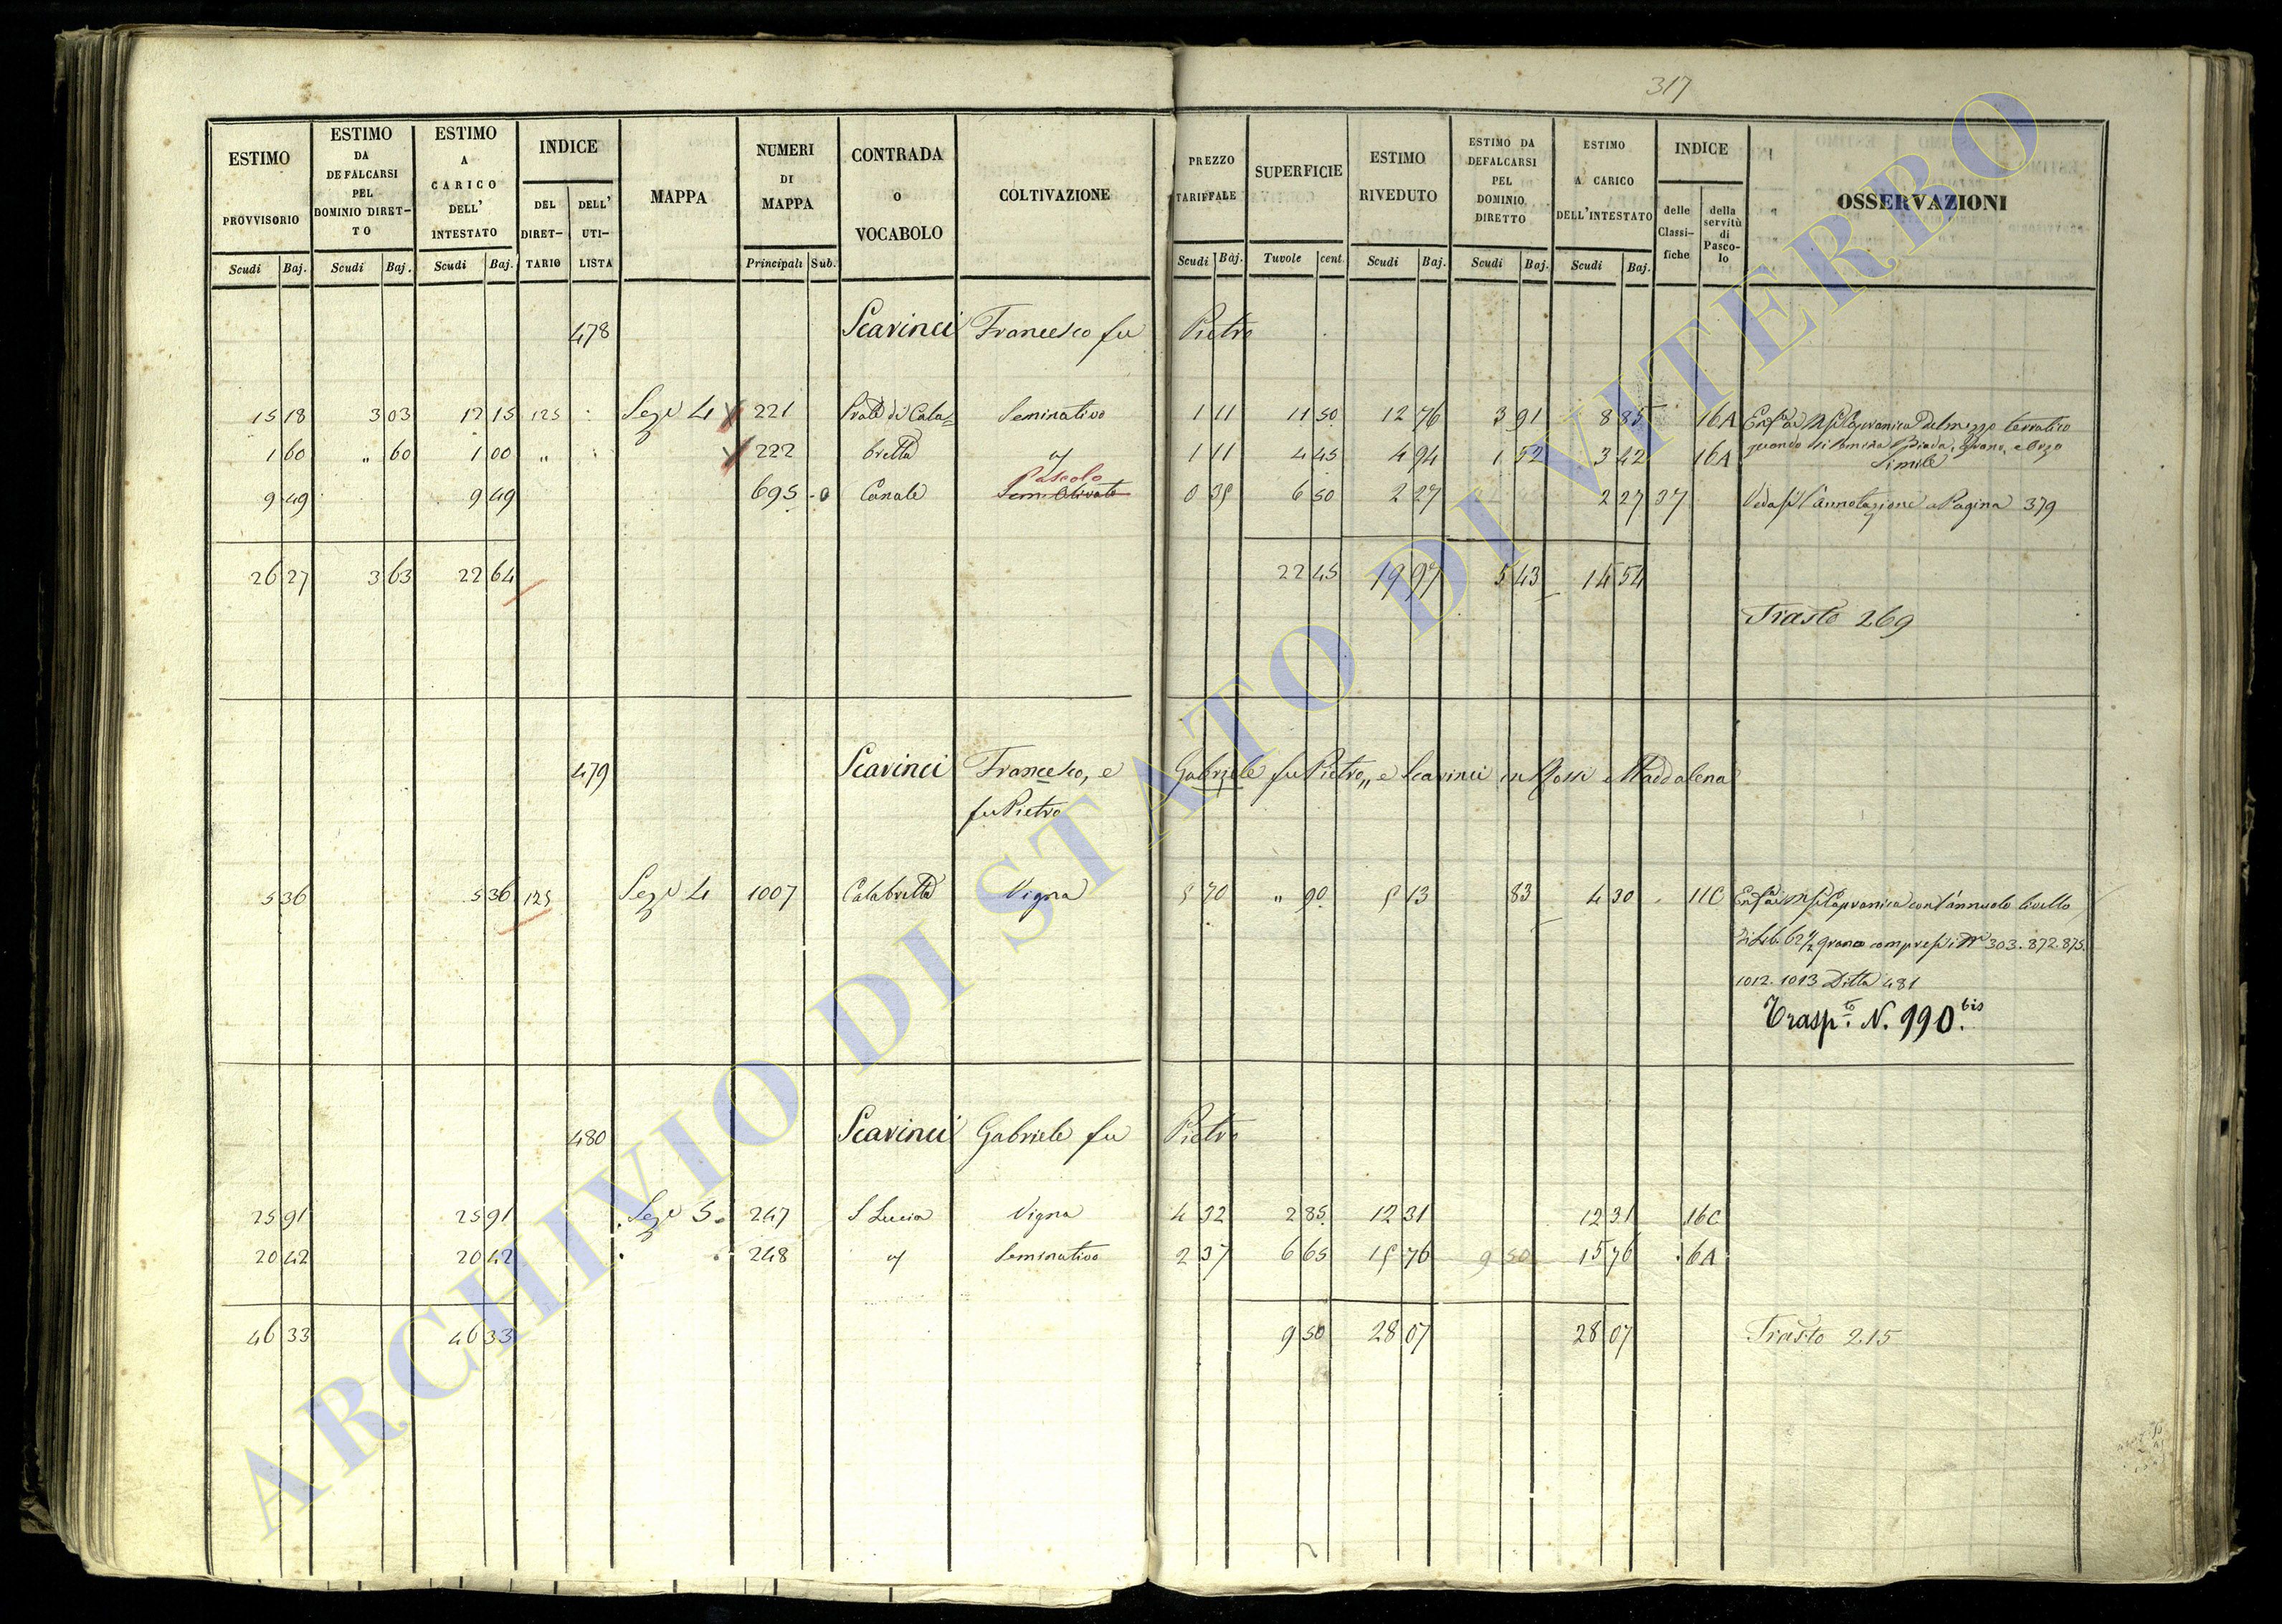 317
ESTIMO PROVVISORIO Scudi Baj.
ESTIMO DA DEFALCARSI PEL DOMINIO DIRETTO Scudi Baj.
ESTIMO A CARICO DELL' INTESTATO Scudi Baj.
INDICE DEL DIRETTARIO DELL' UTILISTA
MAPPA
NUMERI DI MAPPA Principali Sub.
CONTRADA O VOCABOLO
COLTIVAZIONE
PREZZO TARIFFALE Scudi Baj.
SUPERFICIE Tavole cent.
ESTIMO RIVEDUTO Scudi Baj.
ESTIMO DA DEFALCARSI PEL DOMINIO DIRETTO Scudi Baj.
ESTIMO A CARICO DELL'INTESTATO Scudi Baj.
INDICE delle Classifiche della servitù di Pascolo
OSSERVAZIONI
478 Scavinci Francesco fu Pietro
15 18 3 03 12 15 125 Seze 4 221 Prato di Cala= Seminativo 1 11 11 50 12 76 3 91 8 85 16A
quando si semina Biada, Grano, e Orzo
1 60 " 60 1 00 " 222 bretta 1 11 4 45 4 94 1 52 3 42 16A Simile
Pascolo
9 49 9 49 695 Canale Sem. Olivato 0 35 6 50 2 27 2 27 37 Vedasi l'annotazione a Pagina 379
26 27 3 63 22 64 22 45 19 97 5 43 14 54
Trasto 269
479 Scavinci Francesco, e Gabriele fu Pietro,, e Scavinci in Rossi Maddalena
fu Pietro
5 36 5 36 125 Seze 4 1007 Calabretta Vigna 5 70 " 90 5 13 83 4 30 11C con l'annuale livello
di Lib. 62 1/2 grano compresi i Nri 303. 872. 875.
1012. 1013 Ditta 481
Traspto. N. 990.bis
480 Scavinci Gabriele fu Pietro
25 91 25 91 Seze 5 247 S Lucia Vigna 4 32 2 85 12 31 12 31 16C
20 42 20 42 248 Seminativo 2 37 6 65 15 76 9 50 15 76 6A
46 33 46 33 9 50 28 07 28 07 Trasto 215
ARCHIVIO DI STATO DI VITERBO